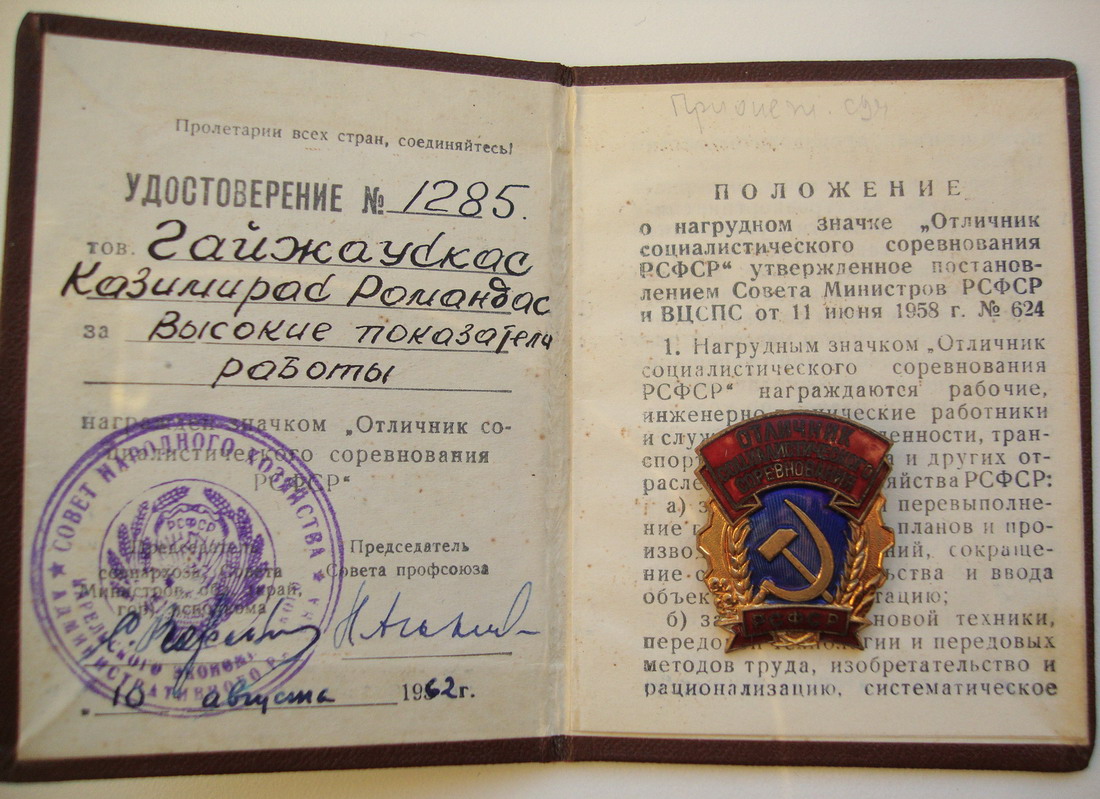 Пролетарии всех стран, соединяйтесь!
УДОСТОВЕРЕНИЕ № 1285.
тов. Гайжаускас
Казимирас Романдас
за высокие показатели
работы
награжден значком „Отличник со-
циалистического соревнования
РСФСР“
Председатель
совнархоза, Совета
Министров
горисполкома
Председатель
Совета профсоюза
10 августа 1962 г.
СОВЕТ НАРОДНОГО ХОЗЯЙСТВА
АДМИНИСТРАТИВНОГО
РСФСР
ПОЛОЖЕНИЕ
о нагрудном значке „Отличник
социалистического соревнования
РСФСР“ утвержденное постанов-
лением Совета Министров РСФСР
и ВЦСПС от 11 июня 1958 г. № 624
1. Нагрудным значком „Отличник
социалистического соревнования
РСФСР“ награждаются рабочие,
инженерно-технические работники
и тран-
и других от-
РСФСР:
а) перевыполне-
ние планов и про-
сокраще-
ние и ввода
б) новой техники,
и передовых
методов труда, изобретательство и
рационализацию, систематическое
ОТЛИЧНИК
СОЦИАЛИСТИЧЕСКОГО
СОРЕВНОВАНИЯ
РСФСР